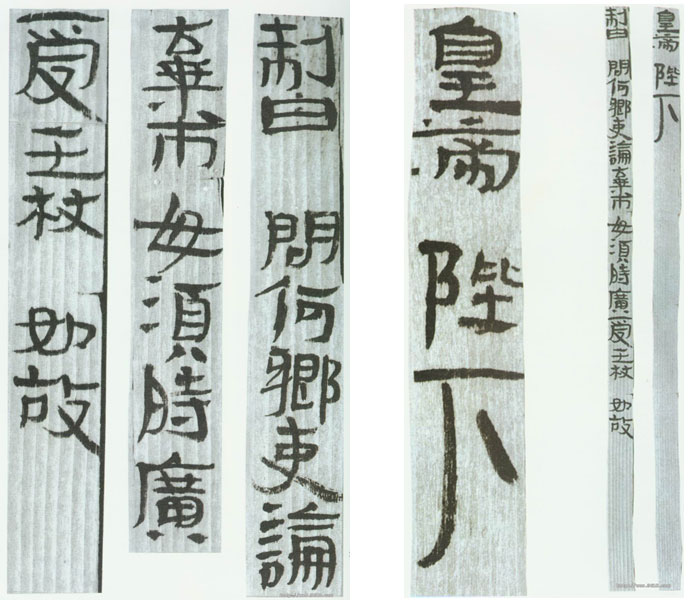 皇帝 陛下
制曰 問何鄉吏論棄市 毋須時廣受王杖 如故
皇帝 陛下
制曰 問何鄉吏論
棄市 毋須時廣
受王杖 如故